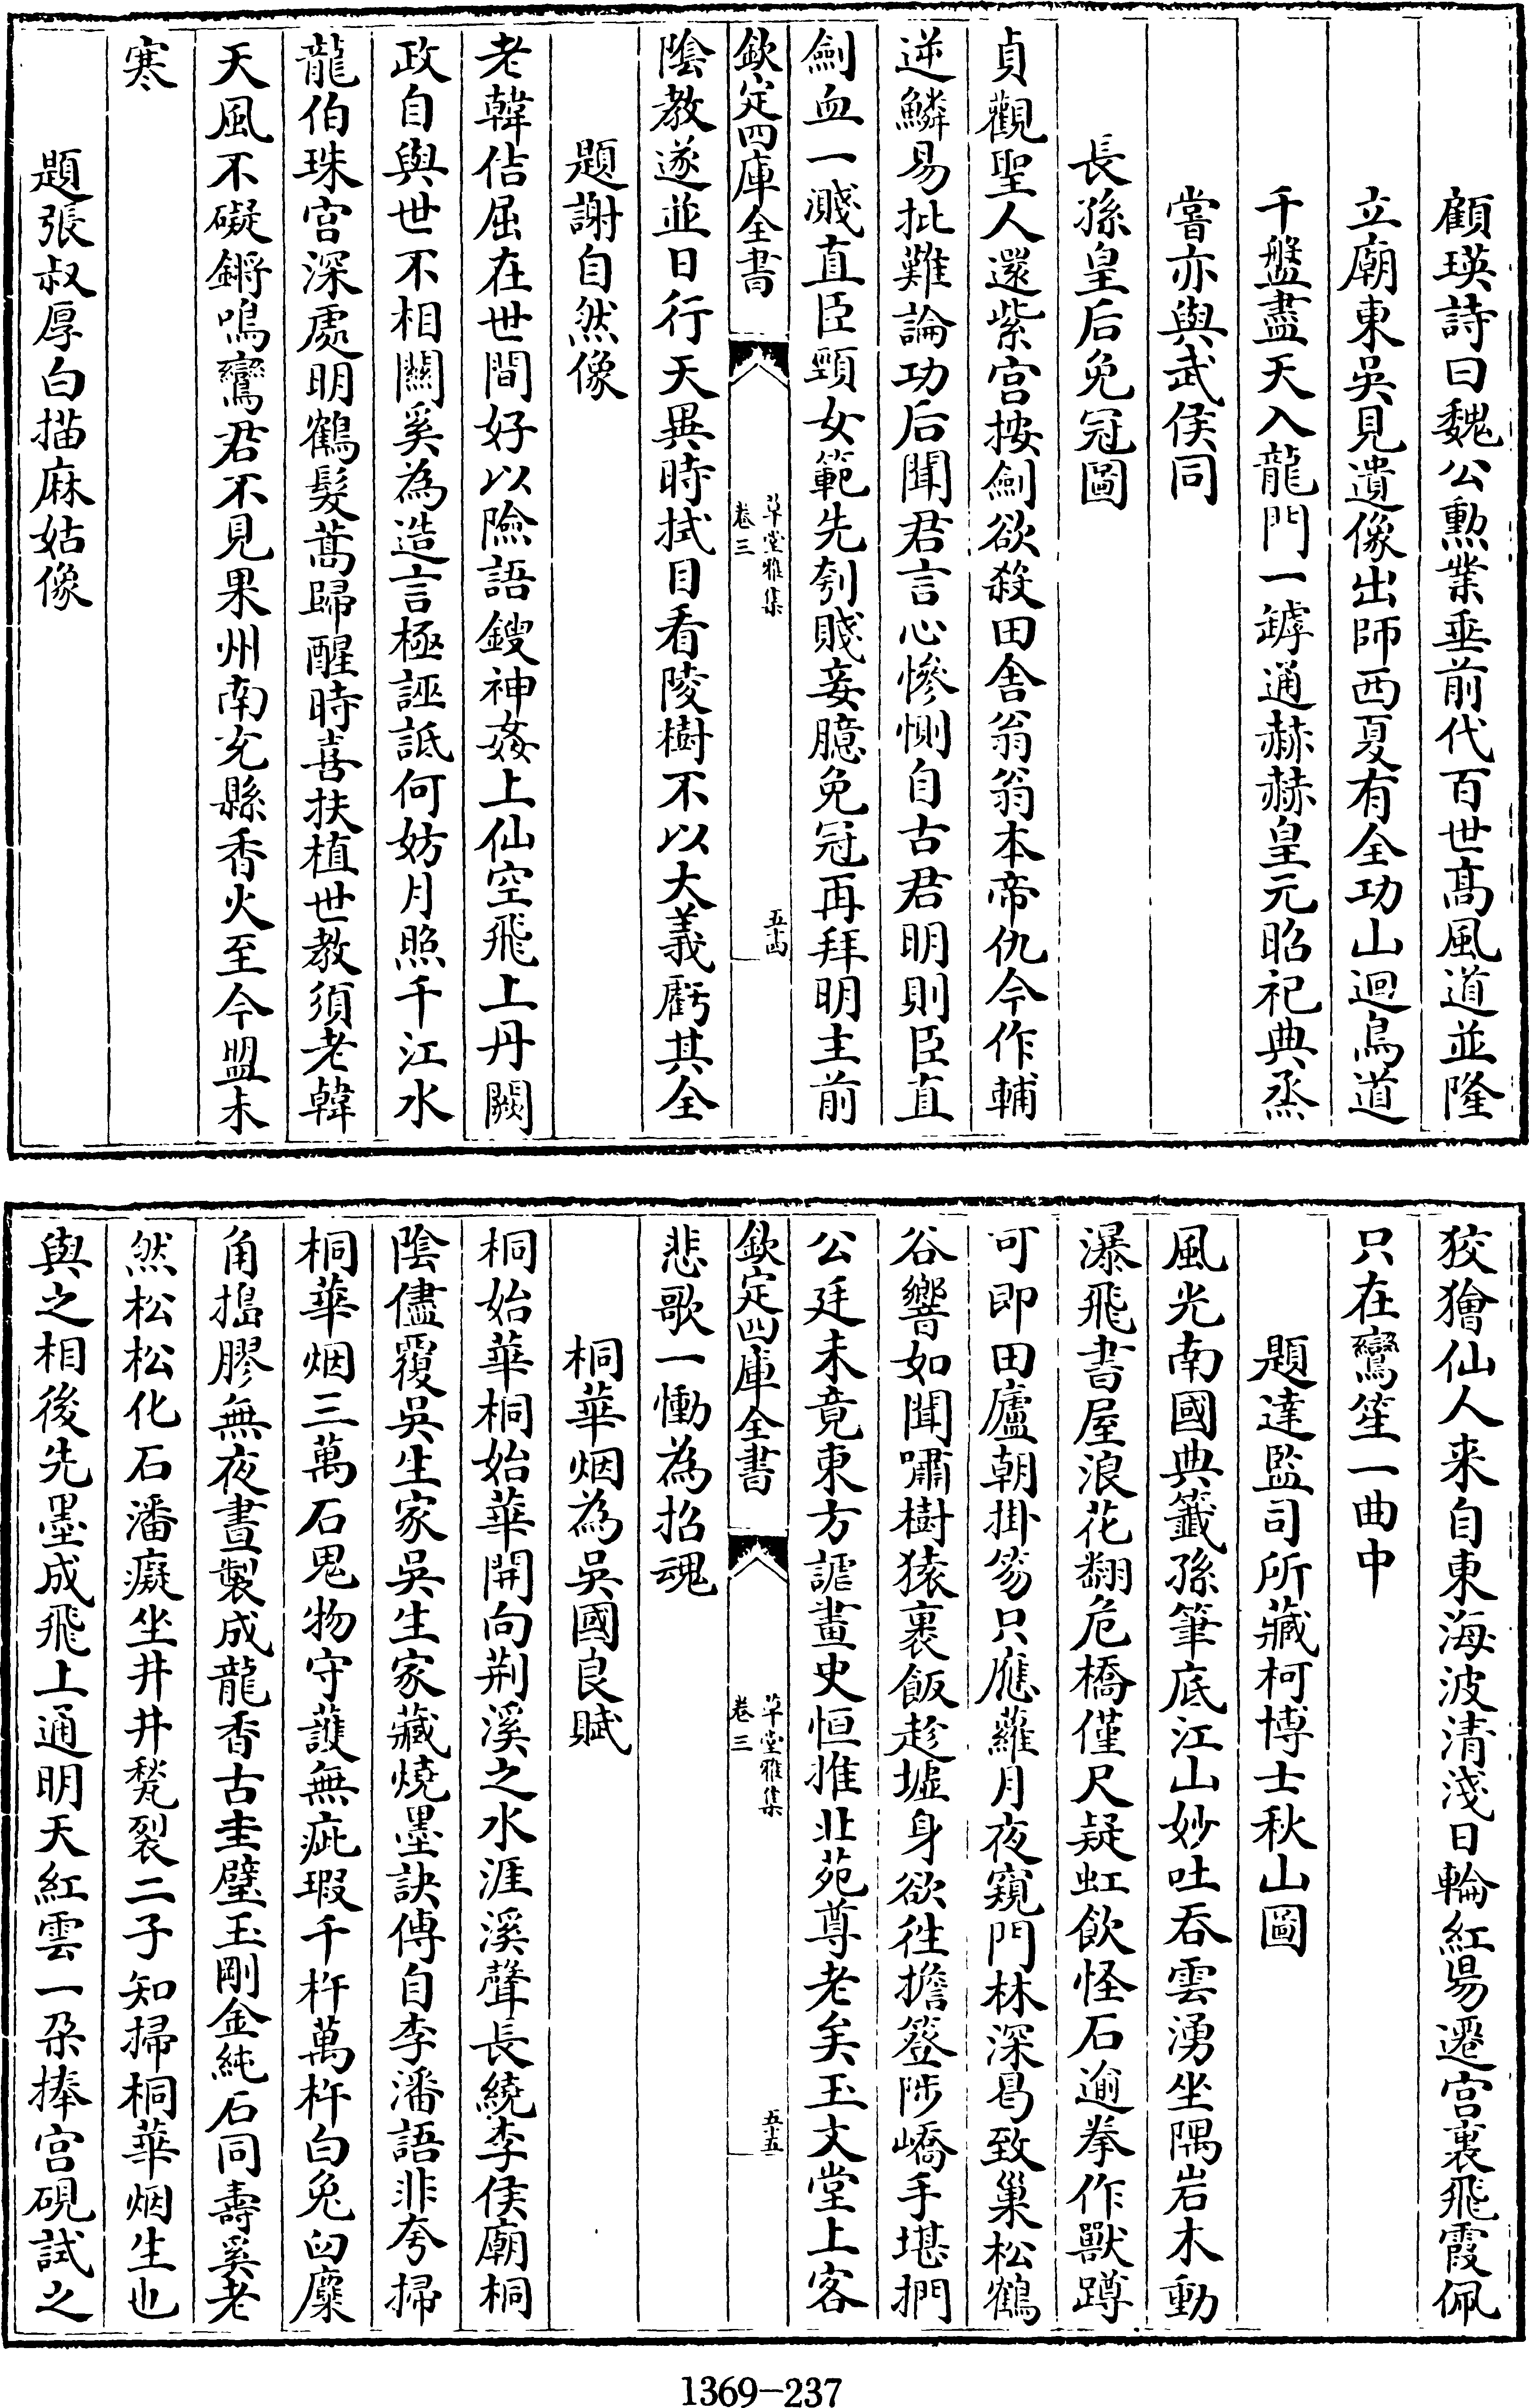 顧瑛詩曰魏公勲業垂前代百世髙風道並隆
立廟東吳見遺像出師西夏有全功山迴鳥道
千盤盡天入龍門一罅通赫赫皇元昭祀典烝
嘗亦與武侯同
長孫皇后免冠圖
貞觀聖人還紫宫按劍欲殺田舍翁翁本帝仇今作輔
逆鱗易批難論功后聞君言心慘惻自古君明則臣直
劍血一濺直臣頸女範先刳賤妾臆免冠再拜明主前
欽定四庫全書
草堂雅集
卷三
五十四
隂教遂並日行天異時拭目看陵樹不以大義虧其全
題謝自然像
老韓佶屈在世間好以險語鎪神姦上仙空飛上丹闕
政自與世不相關奚為造言極誣詆何妨月照千江水
龍伯珠宫深處明鶴髮蒿歸醒時喜扶植世教須老韓
天風不礙鏘鳴鸞君不見果州南充縣香火至今盟未
寒
題張叔厚白描麻姑像
狡獪仙人来自東海波清淺日輪紅昜遷宫裏飛霞佩
只在鸞笙一曲中
題達監司所藏柯博士秋山圖
風光南國典籖孫筆底江山妙吐吞雲湧坐隅岩木動
瀑飛書屋浪花翻危橋僅尺疑虹飲怪石逾拳作獸蹲
可即田廬朝掛笏只應蘿月夜窺門林深曷致巢松鶴
谷響如聞嘯樹猿裹飯趁墟身欲徃擔簦陟嶠手堪捫
公廷未竟東方謔畫史恒推北苑尊老矣玉文堂上客
欽定四庫全書
草堂雅集
卷三
五十五
悲歌一慟為招魂
桐華烟為吳國良賦
桐始華桐始華開向荆溪之水涯溪聲長繞李侯廟桐
隂儘覆吳生家吳生家藏燒墨訣傳自李潘語非夸掃
桐華烟三萬石鬼物守護無疵瑕千杵萬杵白兔臼麋
角搗膠無夜晝製成龍香古圭璧玉剛金純石同壽奚老
然松松化石潘癡坐井井甃裂二子知掃桐華烟生也
與之相後先墨成飛上通明天紅雲一朶捧宫硯試之
1369-237